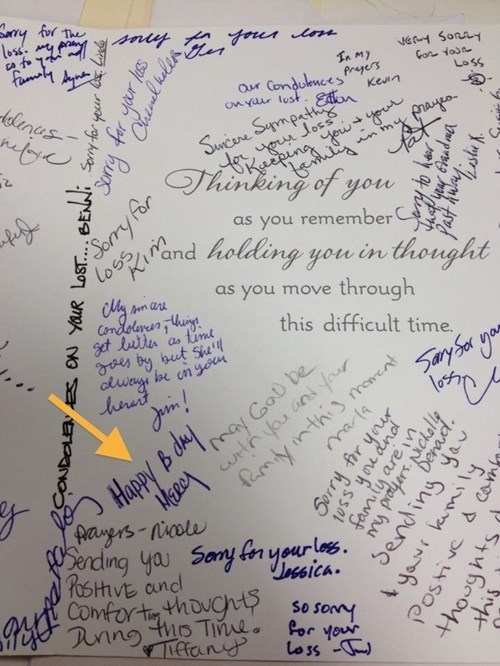 Sorry for the
loss. my prayers
go to you and
family
sorry for your loss
In my
prayers
Kevin
VERY SORRY
FOR YOUR
LOSS
our Condolences
on your lost.
Sorry for your loss
Sorry for your loss
Sincere Sympathy
for your loss
Keeping you + your
family in my prayers
Pat
Sorry to hear
that your Grandma
Past Away.
Thinking of you
as you remember
and holding you in thought
as you move through
this difficult time.
CONDOLENCES ON YOUR LOST.... BENNI
Sorry for
loss
Kim
My sincere
condolences, things
get better as time
goes by but She'll
always be in your
heart
Jim!
Sorry for your
loss
Happy B day
Mercy
may GOD be
with you and your
family in this moment
marla
Sorry for your
loss you and
family are in
my prayers.
Sending you
& your family
positive &
thoughts
this
prayers - Nicole
Sending you
POSITIVE and
Comforting thoughts
During this Time.
Tiffany
Sorry for your loss.
Jessica.
so sorry
for your
loss